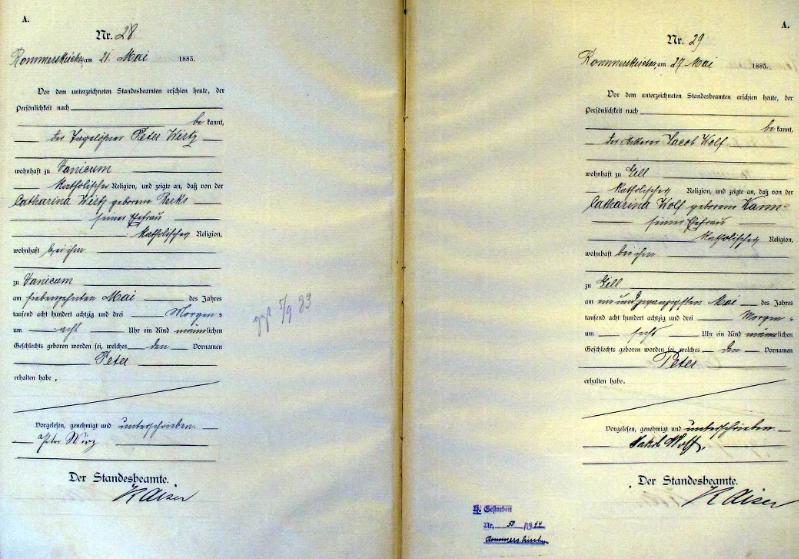 A.
Nr. 28
Rommerskirchen, am 21. Mai 1883.
Vor dem unterzeichneten Standesbeamten erschien heute, der
Persönlichkeit nach
be kannt,
der Tagelöhner Peter Wirtz
wohnhaft zu Vanicum
katholischer Religion, und zeigte an, daß von der
Catharina Wirtz geborene
seiner Ehefrau
katholischer Religion,
wohnhaft bei ihm
zu Vanicum
am siebenzehnten Mai des Jahres
tausend acht hundert achtzig und drei Morgens
um acht Uhr ein Kind männlichen
Geschlechts geboren worden sei, welches den Vornamen
Peter
erhalten habe.
Vorgelesen, genehmigt und unterschrieben
Peter Wirz
Der Standesbeamte.
Kaiser
ggf. 5/9 83
A.
Nr. 29
Rommerskirchen, am 27 Mai 1883.
Vor dem unterzeichneten Standesbeamten erschien heute, der
Persönlichkeit nach
be kannt,
der Ackerer Jacob Wolf
wohnhaft zu Gill
katholischer Religion, und zeigte an, daß von der
Catharina Wolf geborene Kamm
seiner Ehefrau
katholischer Religion,
wohnhaft bei ihm
zu Gill
am ein und zwanzigsten Mai des Jahres
tausend acht hundert achtzig und drei Morgens
um sechs Uhr ein Kind männlichen
Geschlechts geboren worden sei, welches den Vornamen
Peter
erhalten habe.
Vorgelesen, genehmigt und unterschrieben
Jakob Wolf
Der Standesbeamte.
Kaiser
Nr.
Rommerskirchen